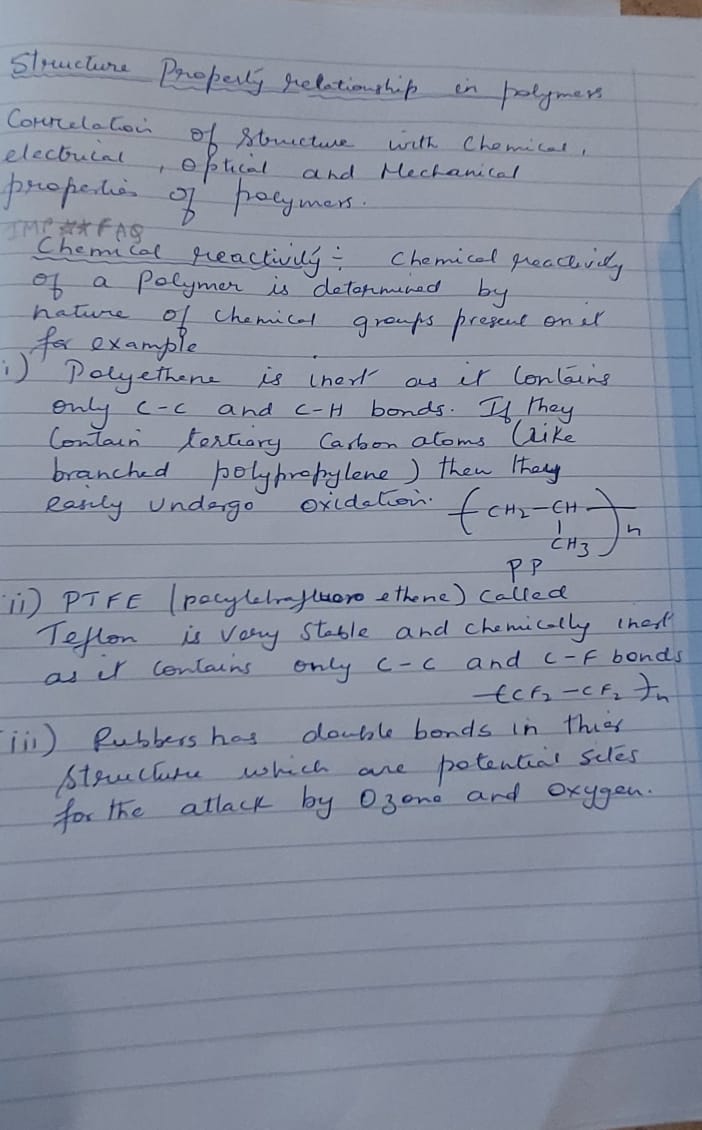 Structure Property relationship in polymers
Correlation of structure with chemical,
electrical, optical and Mechanical
properties of polymers.
IMP ** FAQ
Chemical reactivity :- Chemical reactivity
of a Polymer is determined by
nature of chemical groups present on it
for example
i) Polyethene is inert as it contains
only C-C and C-H bonds. If they
Contain tertiary Carbon atoms (like
branched polypropylene) then they
easily undergo oxidation. (CH2-CH)n
CH3
PP
ii) PTFE (polytetrafluoro ethene) called
Teflon is very stable and chemically inert
as it contains only C-C and C-F bonds
(CF2-CF2)n
iii) Rubbers has double bonds in thier
structure which are potential sites
for the attack by Ozone and oxygen.